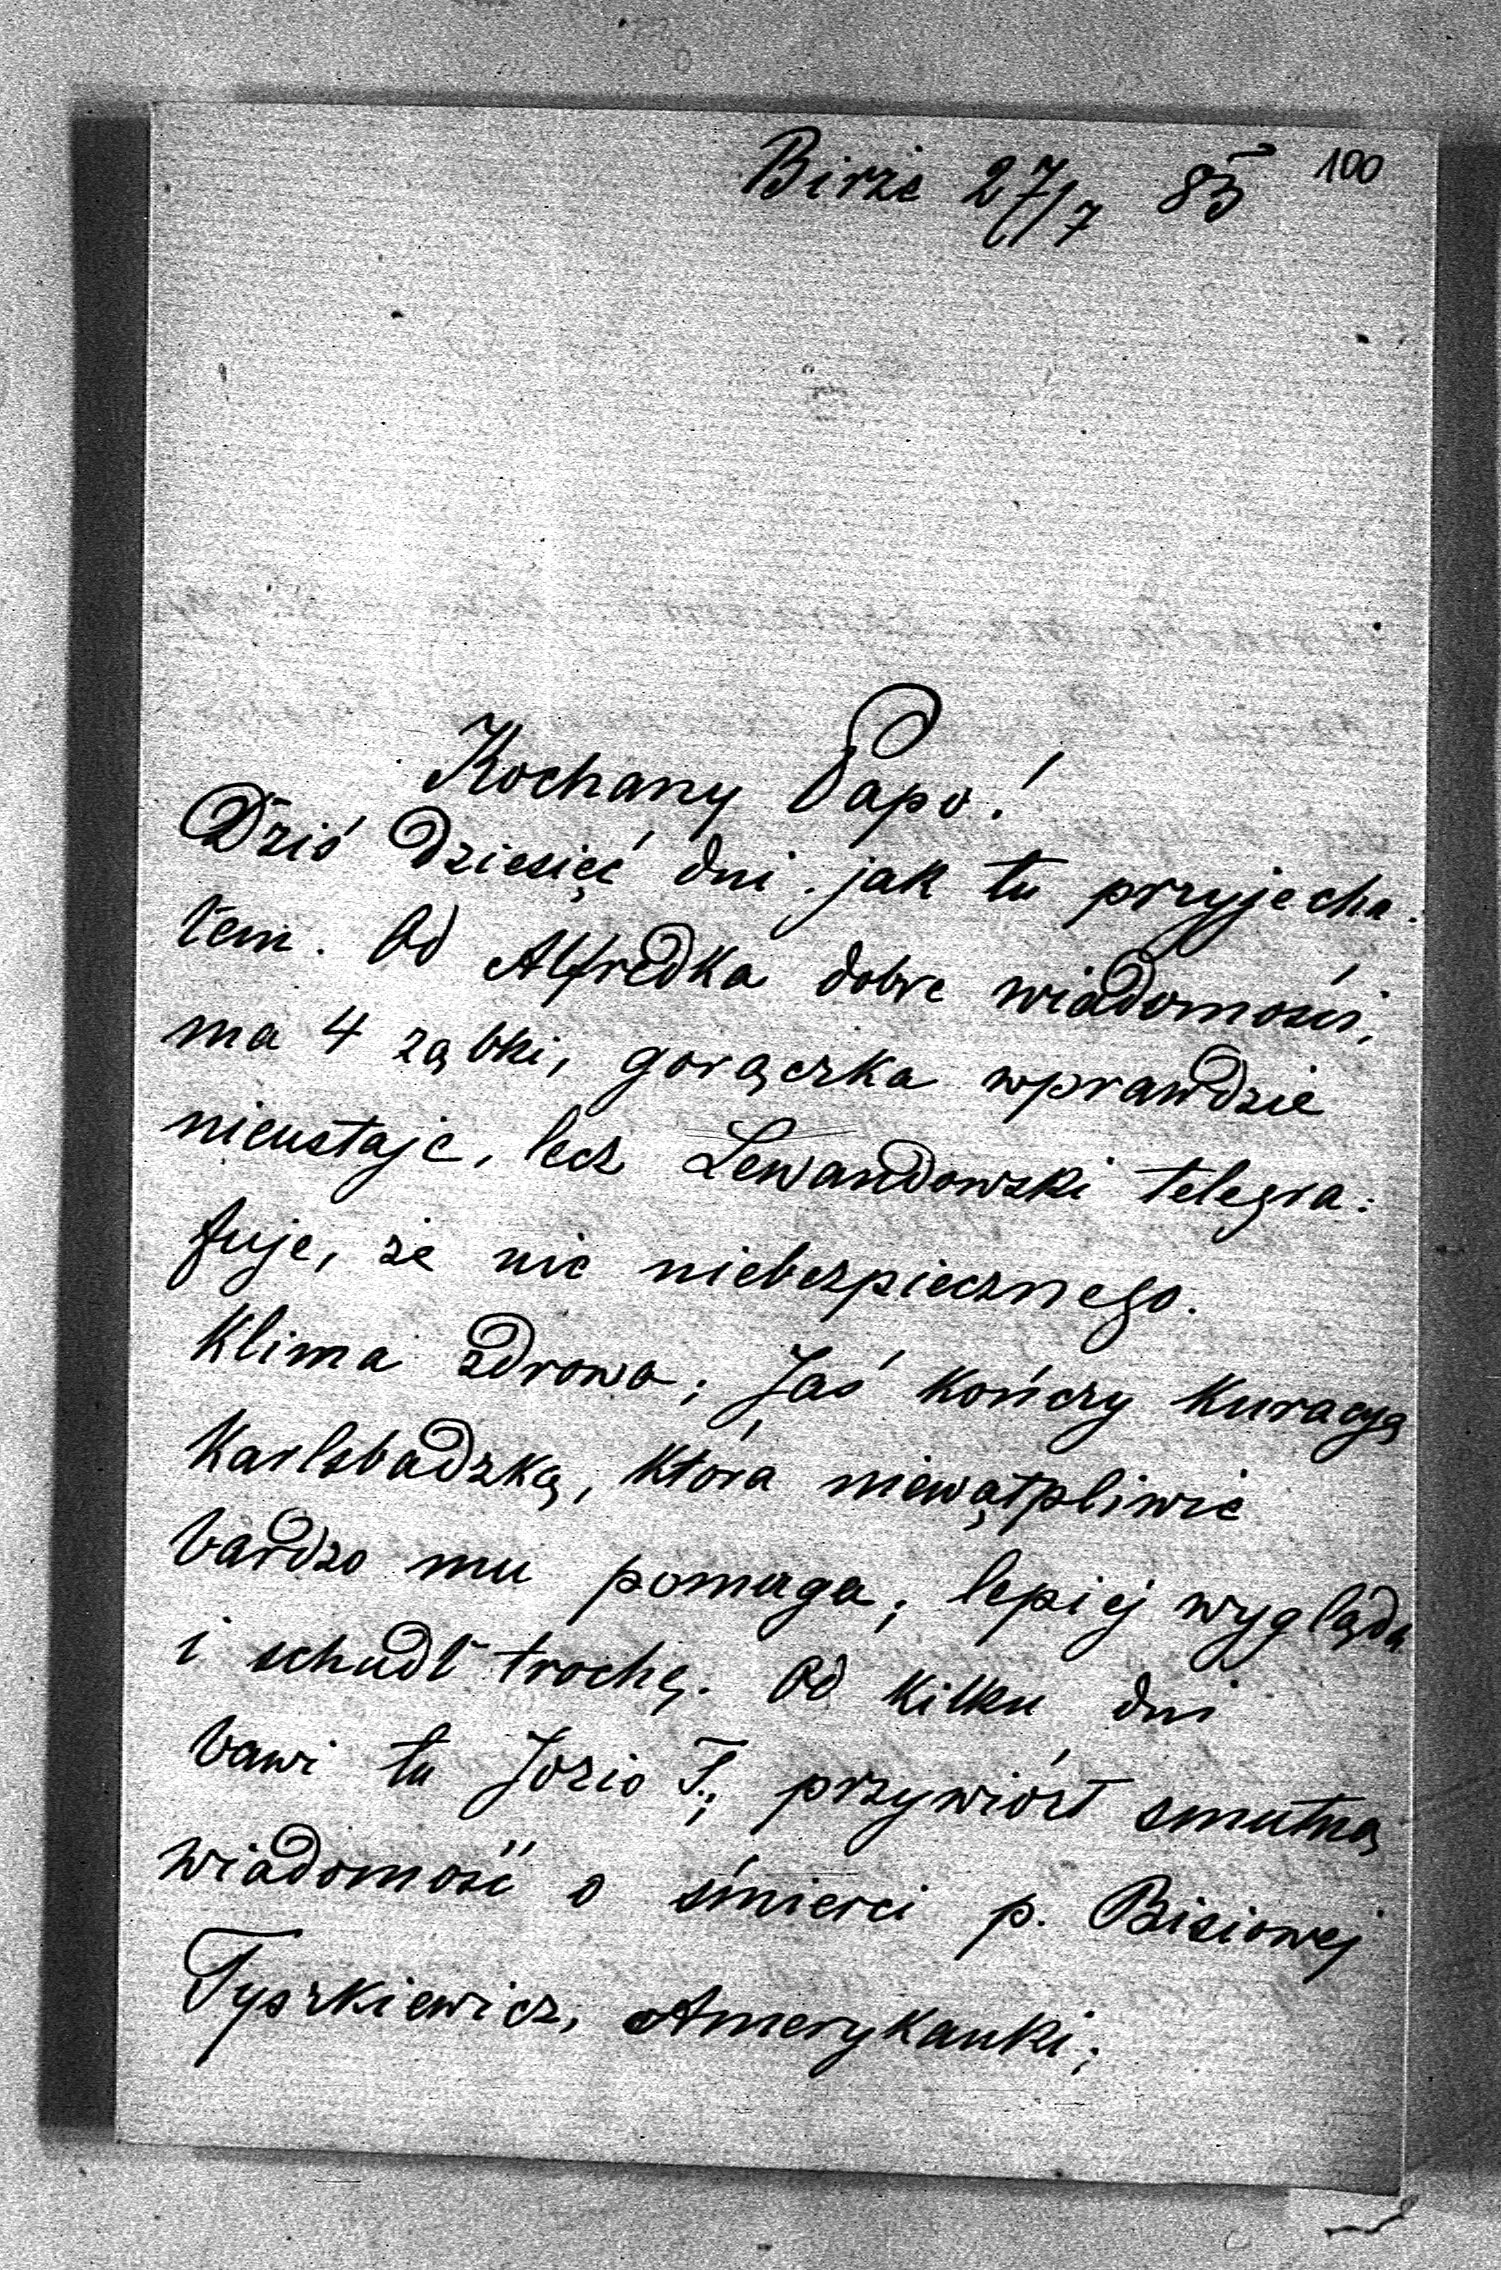 Birże 27/7 85 100
Kochany Papo!
Dziś dziesięć dni jak tu przyjecha-
łem. Od Alfredka dobre wiadomości,
ma 4 ząbki, gorączka wprawdzie
nieustaje, lecz Lewandowski telegra-
fuje, że nic niebezpiecznego.
Klima zdrowa; Jaś kończy kuracyą
Karlsbadzką, która niewątpliwie
bardzo mu pomaga; lepiej wygląda
i schudł trochę. Od kilku dni
bawi tu Józio T.; przywiózł smutną
wiadomość o śmierci p. Bisiowej
Tyszkiewicz, Amerykanki;